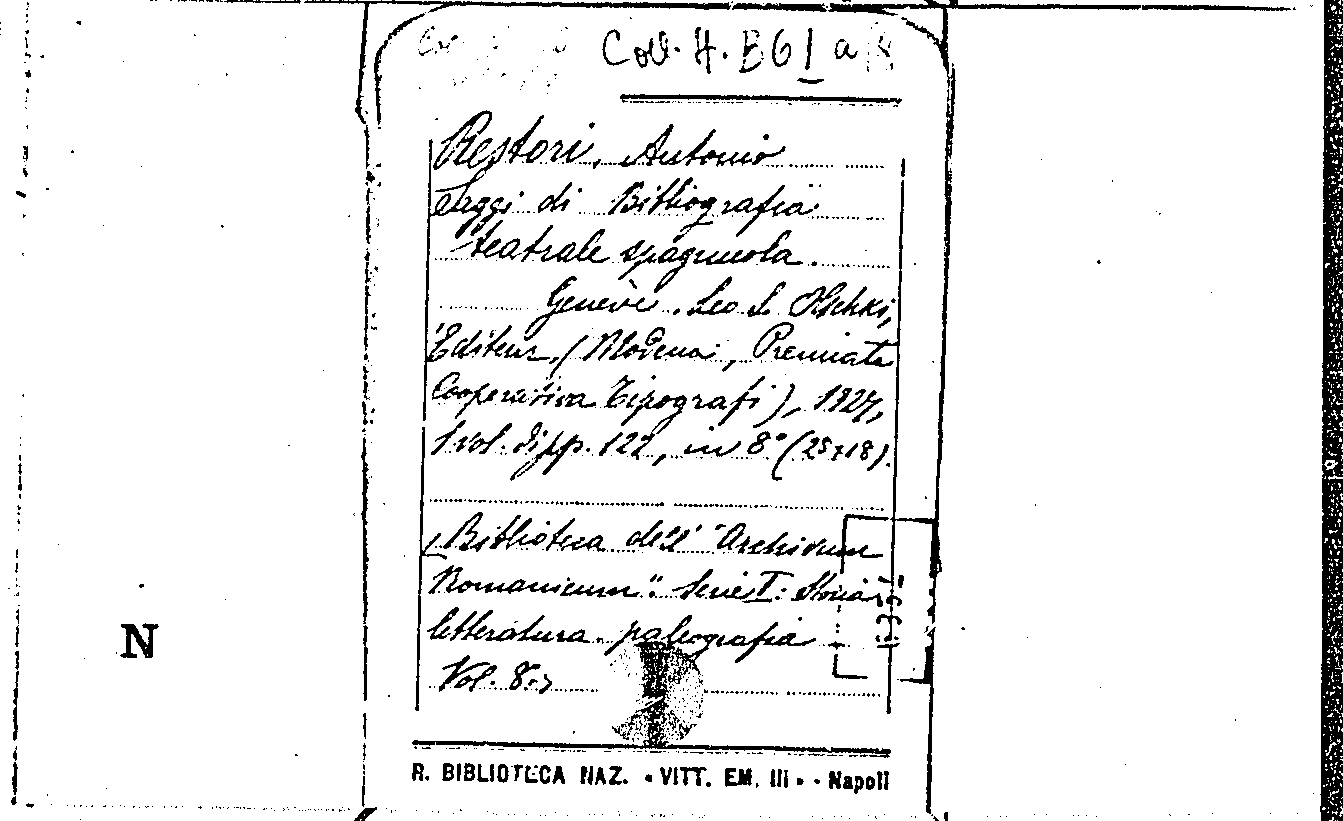 Coll. H. B 61 a
Restori, Antonio
Saggi di Bibliografia
teatrale spagnuola.
Genève, Leo S. Olschki,
Editeur, (Modena, Premiata
Cooperativa Tipografi), 1927,
1 vol. di pp. 122, in 8° (25x18).
(Biblioteca dell' "Archivum
Romanicum". Serie I: Storia
letteratura. paleografia
Vol. 8.)
N
R. BIBLIOTECA NAZ. • VITT. EM. III • - Napoli